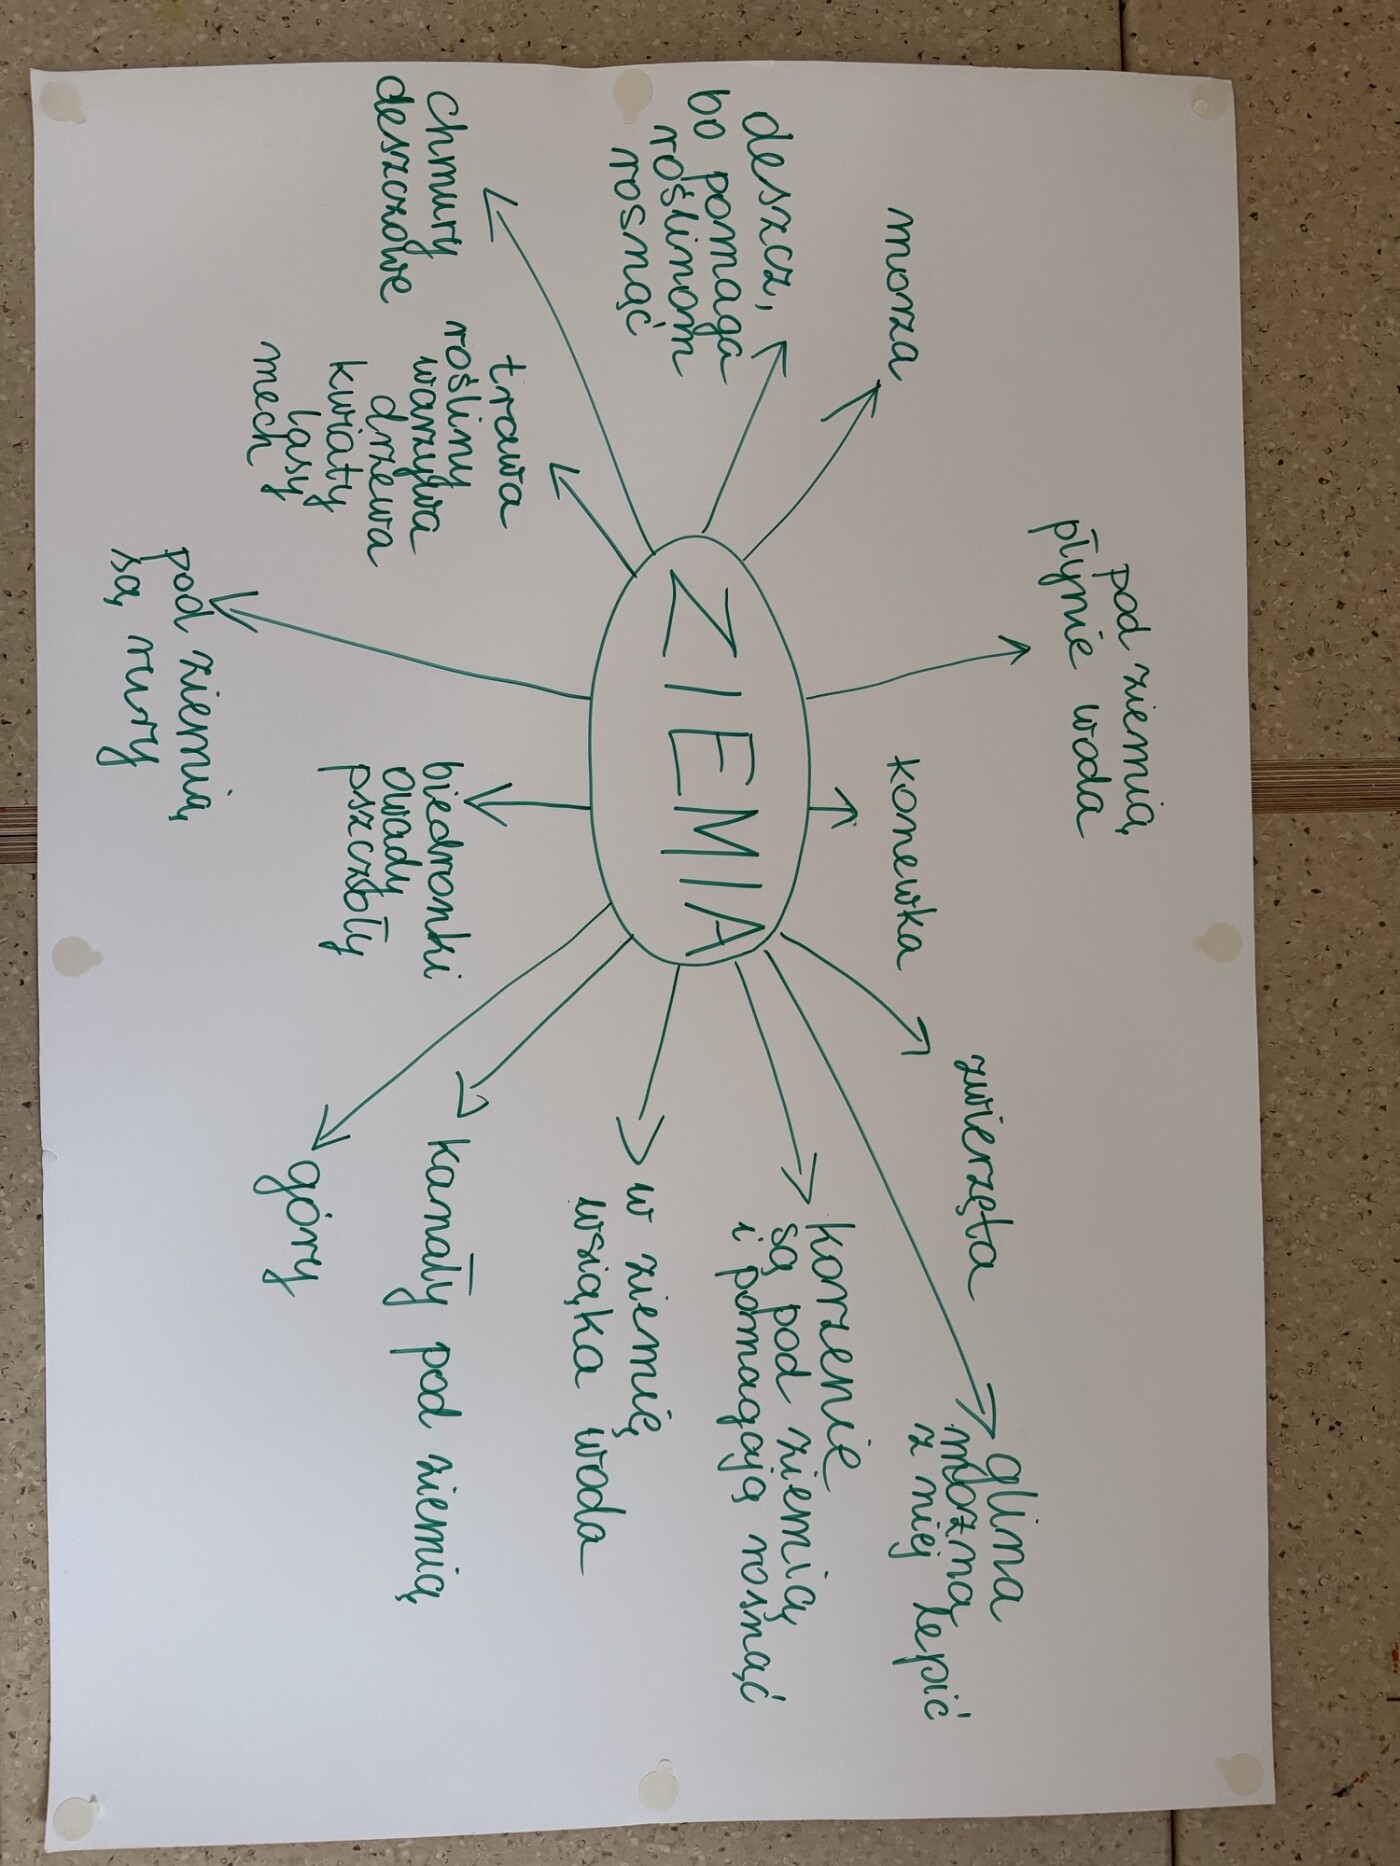 pod ziemią
płynie woda
morza
konewka
zwierzęta
deszcz,
bo pomaga
roślinom
rosnąć
glina
można
z niej lepić
ZIEMIA
korzenie
są pod ziemią
i pomagają rosnąć
w ziemię
wsiąka woda
chmury
deszczowe
trawa
rośliny
warzywa
drzewa
kwiaty
lasy
mech
biedronki
owady
pszczoły
kanały pod ziemią
góry
pod ziemią
są rury